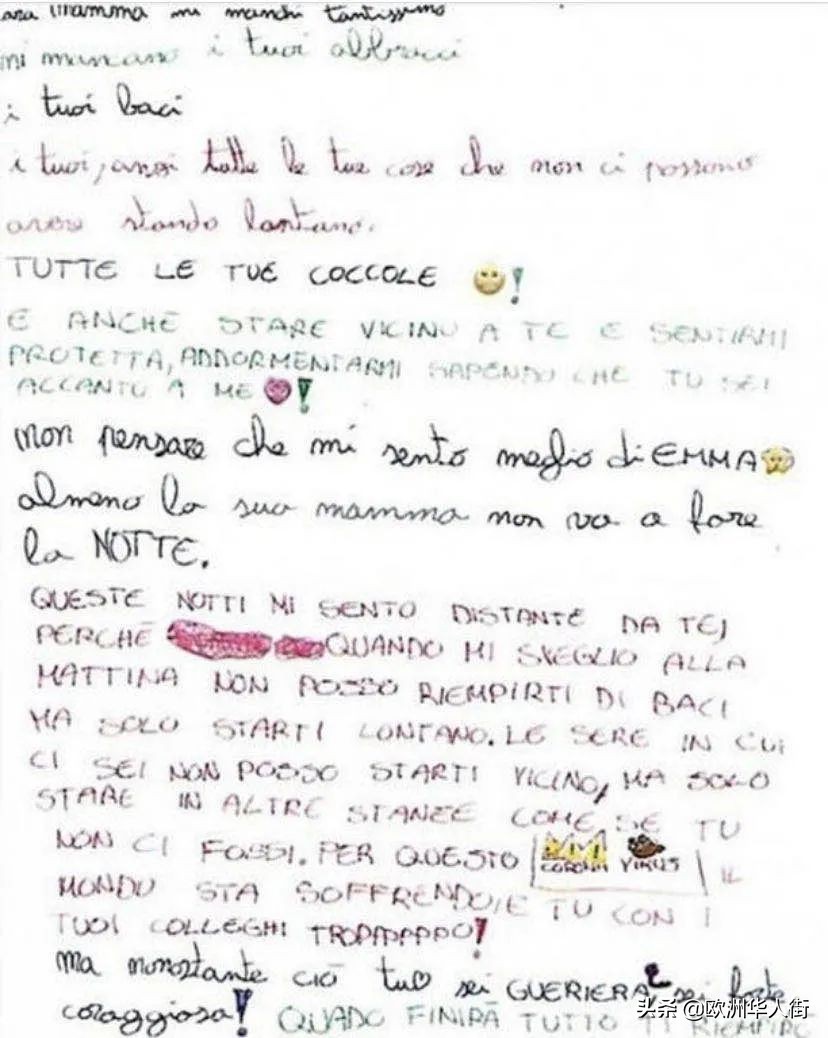 ara mamma mi manchi tantissimo
mi mancano i tuoi abbracci
i tuoi baci
i tuoi, anzi tutte le tue cose che non ci possono
stando lontano.
TUTTE LE TUE COCCOLE !
E ANCHE STARE VICINO A TE E SENTIRMI
PROTETTA, ADDORMENTARMI SAPENDO CHE TU SEI
ACCANTO A ME !
non pensare che mi sento meglio di EMMA
almeno la sua mamma non va a fare
la NOTTE.
QUESTE NOTTI MI SENTO DISTANTE DA TE,
PERCHÉ QUANDO MI SVEGLIO ALLA
MATTINA NON POSSO RIEMPIRTI DI BACI
MA SOLO STARTI LONTANO. LE SERE IN CUI
CI SEI NON POSSO STARTI VICINO, MA SOLO
STARE IN ALTRE STANZE COME SE TU
NON CI FOSSI. PER QUESTO CORONA VIRUS IL
MONDO STA SOFFRENDO, E TU CON I
TUOI COLLEGHI TROPPO!
ma nonostante ciò tu sei GUERIERA sei forte
coraggiosa! QUADO FINIRÀ TUTTO TI RIEMPIRÒ
头条 @欧洲华人街